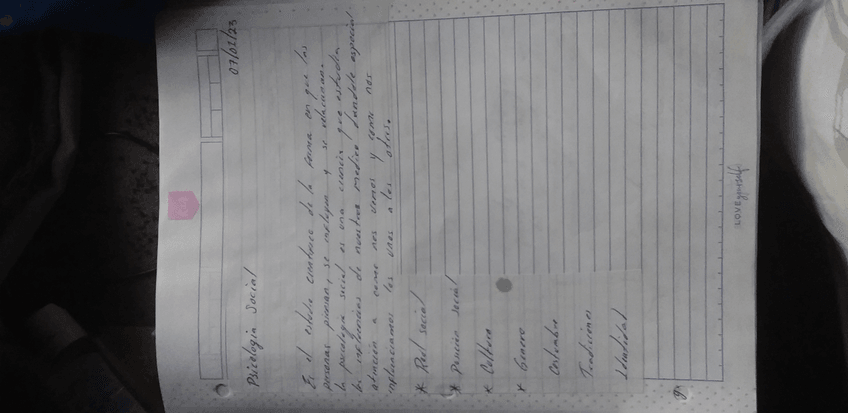 07/02/23
Psicologia Social
Es el estudio científico de la forma en que las
personas piensan, se influyen y se relacionan.
La psicología social es una ciencia que estudia
las influencias de nuestro medio dandole especial
atención a como nos vemos y como nos
influenciamos los unos a los otros.
* Rol social
* Posición social
* Cultura
* Genero
Costumbre
Tradiciones
Identidad
LOVE yourself